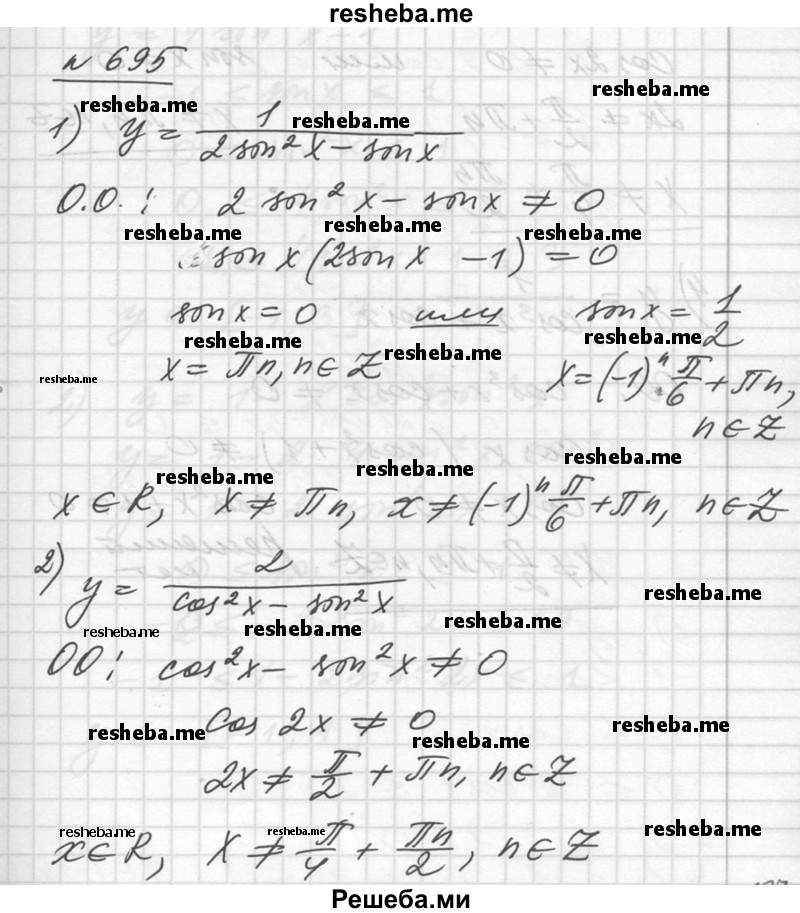 resheba.me
n 695
resheba.me resheba.me
1) y = 1 / (2 sin² x − sin x) resheba.me
О.О.: 2 sin² x − sin x ≠ 0
resheba.me resheba.me resheba.me
sin x (2 sin x − 1) = 0
sin x = 0 или sin x = 1/2
resheba.me resheba.me resheba.me
x = πn, n ∈ Z x = (−1)ⁿ π/6 + πn,
resheba.me
n ∈ Z
resheba.me resheba.me resheba.me
x ∈ R, x ≠ πn, x ≠ (−1)ⁿ π/6 + πn, n ∈ Z
2) y = 2 / (cos² x − sin² x)
resheba.me resheba.me resheba.me resheba.me
ОО: cos² x − sin² x ≠ 0
cos 2x ≠ 0
resheba.me resheba.me resheba.me
2x ≠ π/2 + πn, n ∈ Z
resheba.me resheba.me resheba.me
x ∈ R, x ≠ π/4 + πn/2, n ∈ Z
Решеба.ми